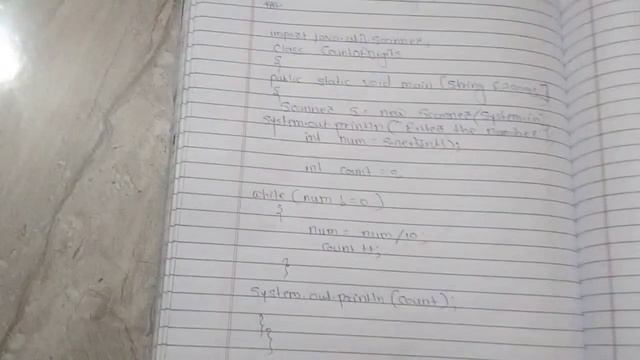 import java.util.Scanner;
class CountofDigits
{
public static void main (String [] args)
{
Scanner s = new Scanner (System.in
System.out.println ("Enter the number
int num = s.nextInt();
int count = 0;
while (num != 0)
{
num = num / 10;
count ++;
}
System.out.println (count);
}
}